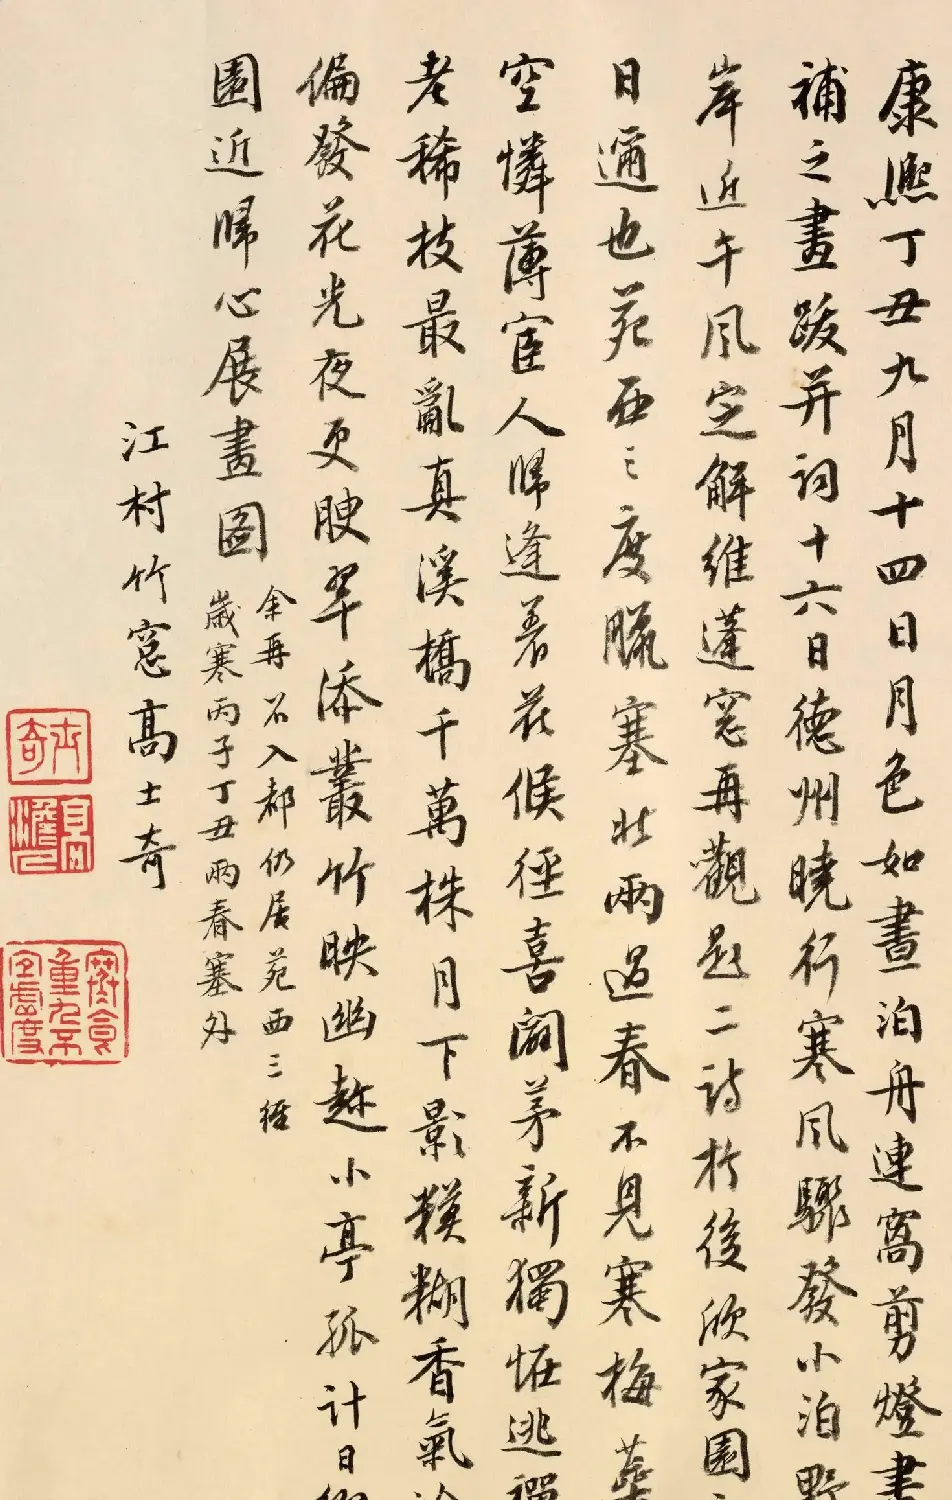 康熙丁丑九月十四日月色如晝泊舟連窩剪燈書
補之畫跋并詞十六日德州曉行寒風驟發小泊野
岸近午風定解維蓬窓再觀題二詩於後欣家園
日邇也苑西三度臘塞北兩過春不見寒梅蕊
空憐薄宦人歸逢著花候徑喜闢茅新獨怪逃禪
老稀枝最亂真溪橋千萬株月下影糢糊香氣
偏發花光夜更腴翠添叢竹映幽趂小亭孤計日
園近歸心展畫圖
余再召入都仍居苑西三經
歲寒丙子丁丑兩春塞外
江村竹窓高士奇
士奇